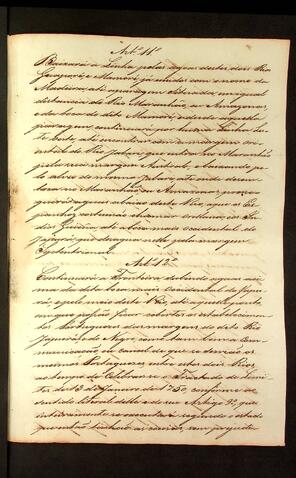 Art. 11º
Baixará a Linha pelas agoas destes dois Rios
Guaporé, e Mamoré, já unidos com o nome de
Madeira até a paragem situada em igual
distancia do Rio Maranhão, ou Amazonas,
e da boca do dito Mamoré; e desde aquella
paragem continuará por huma Linha Les-
te Oeste até encontrar com a margem ori-
ental do Rio Javari, que entra no Maranhão
pela sua margem Austral; e baixando pe-
lo alveo do mesmo Javari até onde desem-
boca no Maranhão ou Amazonas, prose-
guirá agoas abaixo deste Rio, a que os Es-
panhoes costumão chamar Orellana, e os In-
dios Guiena, até a boca mais occidental do
Japurá, que desagoa nelle pela margem
Septentrional.
Art. 12º
Continuará a Fronteira subindo agoas aci-
ma da dita boca mais occidental do Japu-
rá, e pelo meio deste Rio até aquelle ponto
em que possão ficar cobertos os estabelecimen-
tos Portuguezes das margens do dito Rio
Japurá e do Negro, como tambem a Com-
municação ou canal de que se servião os
mesmos Portuguezes entre estes dois Rios
ao tempo de celebrar-se o Tratado de Limi-
tes de 13 de Janeiro de 1750, conforme ao
sentido litteral delle e do seu Artigo 9º, o que
inteiramente se executará segundo o estado
que então tinhão as cousas, sem prejudi-